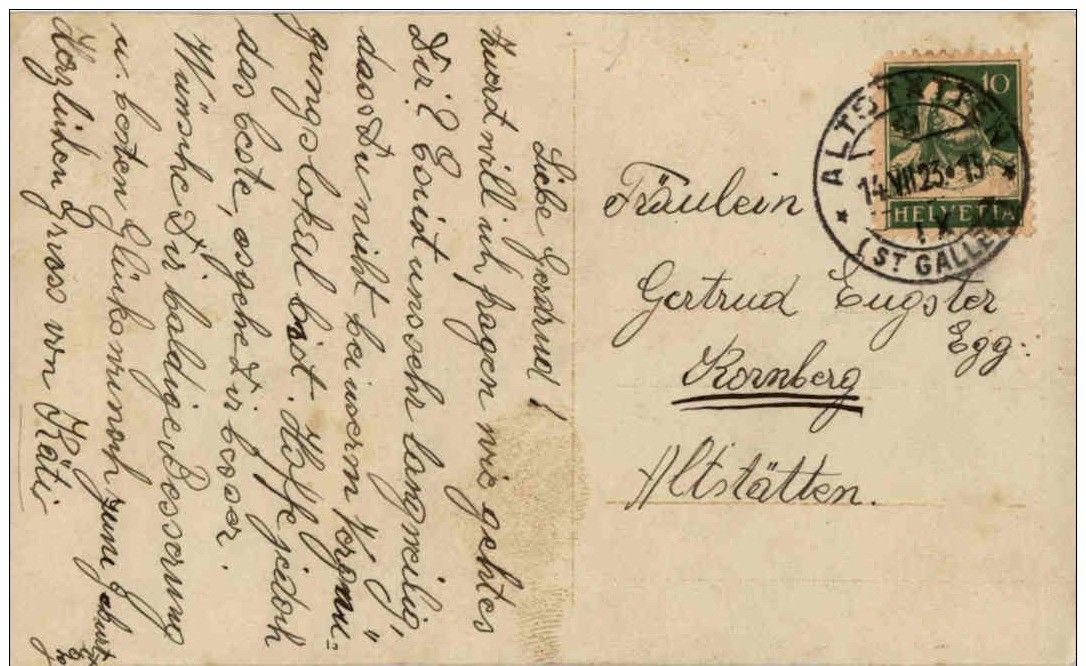 Liebe Gerdrud!
Zuerst will ich fragen wie geht es
Dir? Es ist uns sehr langweilig,
dass Du nicht bei unserm Vergnü-
gungslokal bist. Hoffe jedoch
das beste, es gehe Dir besser.
Wünsche Dir baldige Besserung
u. besten Glückwunsch zum Geburtstag
Herzlichen Gruss von Käti
Fräulein
Gertrud Eugster
Egg.
Kornberg
Altstätten.
10
HELVETIA
ALTSTÄTTEN
14.VIII.23
(ST GALLEN)